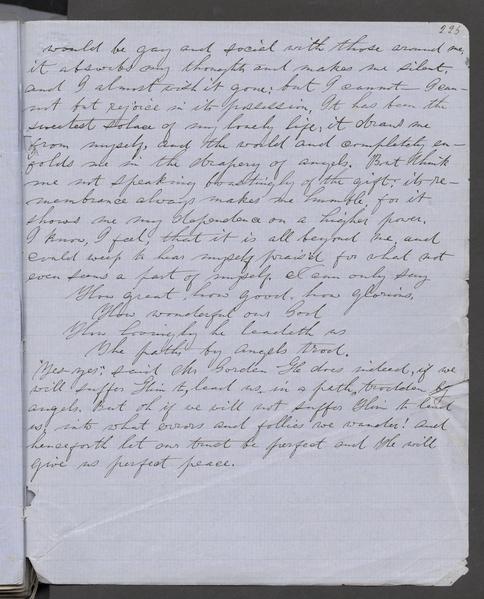 225
would be gay and social with those around me,
it absorbs my thoughts and makes me silent,
and I almost wish it gone; but I cannot I can-
not but rejoice in its possession, It has been the
sweetest solace of my lonely life; it draws me
from myself, and the world and completely en-
folds me in the drapery of angels. But think
me not speaking boastingly of the gift; its re-
membrance always makes me humble, for it
shows me my dependence on a higher power.
I know, I feel, that it is all beyond me, and
could weep to hear myself praised for what not
even seems a part of myself. I can only say
How great, how good, how glorious,
How wonderful our God
How lovingly he leadeth us
The paths by angels trod.
"Yes yes," said Mr Gorden He does indeed, if we
will suffer Him to lead us, in a path, trodden by
angels. But oh if we will not suffer Him to lead
us, into what errors and follies we wander! and
henceforth let our trust be perfect and He will
give us perfect peace.